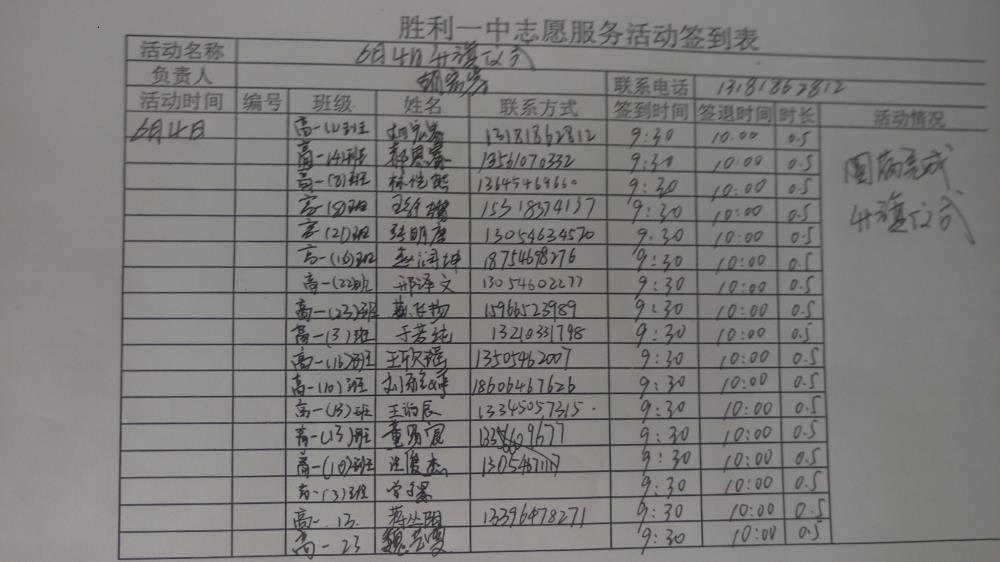 胜利一中志愿服务活动签到表
活动名称 6月4日升旗仪式
负责人 联系电话 13181862812
活动时间 编号 班级 姓名 联系方式 签到时间 签退时间 时长 活动情况
6月4日 高一(1)班 13181862812 9:30 10:00 0.5
高一(4)班 13561070332 9:30 10:00 0.5 圆满完成
高一(8)班 13645469660 9:30 10:00 0.5 升旗仪式
高一(8)班 15318374137 9:30 10:00 0.5
高一(21)班 张明唐 13054634570 9:30 10:00 0.5
高一(16)班 赵润坤 18754698276 9:30 10:00 0.5
高一(22)班 邢泽文 13054602277 9:30 10:00 0.5
高一(23)班 15966523989 9:30 10:00 0.5
高一(3)班 于若纯 13210331798 9:30 10:00 0.5
高一(16)班 王欣瑶 13505462007 9:30 10:00 0.5
高一(10)班 18606467626 9:30 10:00 0.5
高一(13)班 13345057315 9:30 10:00 0.5
高一(13)班 9:30 10:00 0.5
高一(10)班 9:30 10:00 0.5
高一(3)班 9:30 10:00 0.5
高一 13 蒋丛阳 13396478271 9:30 10:00 0.5
高一 23 9:30 10:00 0.5